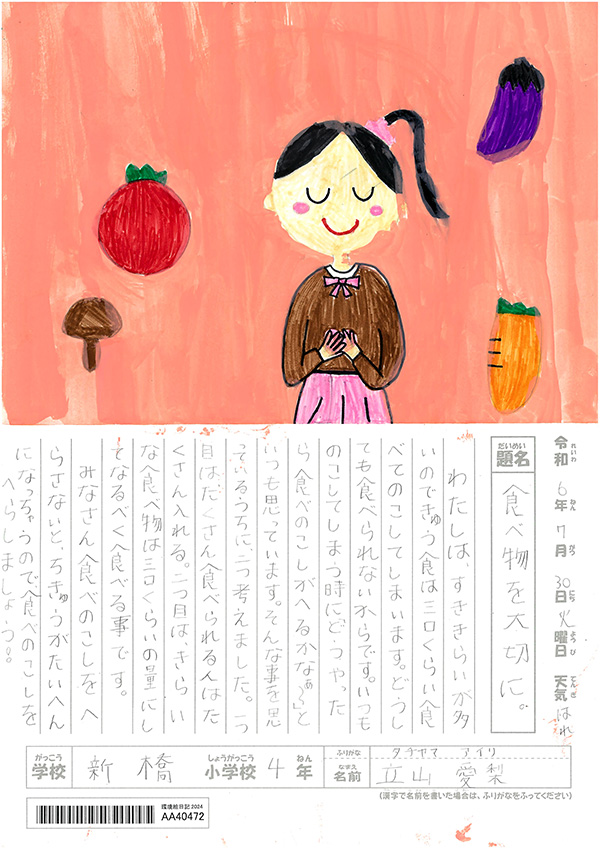 令和6年7月30日火曜日 天気はれ
れいわ ねん がつ にち ようび てんき
だいめい
題名
食べ物を大切に。
わたしは、すききらいが多
いのできゅう食は三口くらい食
べてのこしてしまいます。どうし
ても食べられないからです。いつも
のこしてしまう時にどうやった
ら食べのこしがへるかなぁ〜」と
いつも思っています。そんな事を思
っているうちに、二つ考えました。一つ
目はたくさん食べられる人はた
くさん入れる。二つ目は、きらい
な食べ物は三口くらいの量にし
てなるべく食べる事です。
みなさん食べのこしをへ
らさないと、ちきゅうがたいへん
になっちゃうので、食べのこしを
へらしましょう。
がっこう
学校
新橋
しょうがっこう
小学校
4
ねん
年
ふりがな
タチヤマ アイリ
なまえ
名前
立山愛梨
(漢字で名前を書いた場合は、ふりがなをふってください)
環境絵日記2024
AA40472